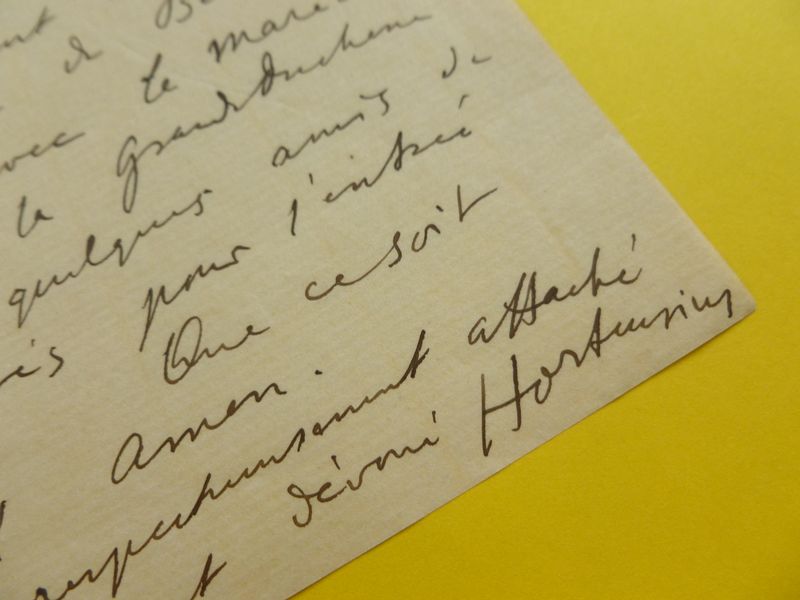 de
avec le
la Grande Duchesse
quelques amis de
pour l'entrée
Que ce soit
amen.
respectueusement attaché
et dévoué Hortensius